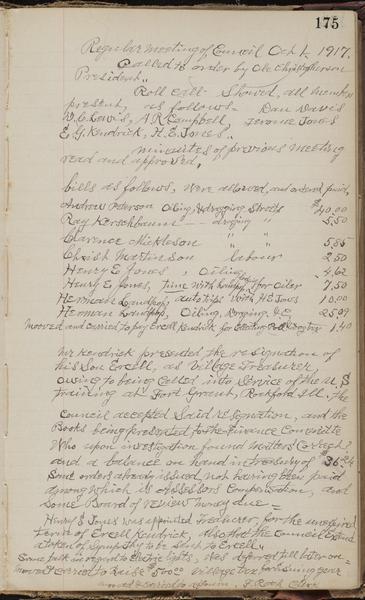 175
Regular meeting of Council Oct 1, 1917.
Called to order by Ole Christopherson
President.
Roll call showed, all members
present, as follows Dan Davis
W. E. Lewis, A R Campbell, Jerome Jones
E. G. Kendrick, H. E. Jones.
minuites of previous meeting
read and approved,
bills as follows, were allowed, and ordered paid,
Andrew Peterson Oiling, & dragging Streets $40.00
Ray Kerschbaum — dragging " 5.50
Clarence Mickleson " " 5.55
Christ Martinson labour 2.50
Henry E Jones, Oiling 4.62
Henry E, Jones, time with for Oiler 7.50
Herman auto tips with HE Jones 10.00
Herman Oiling, 25.09
Mooved and carried to pay Ercell Kendrick for 1.40
Mr Kendrick presented the resignation of
his Son Ercell, as Village Treasurer,
owing to being Called into Service of the U, S
training at Fort Grant, Rockford Ill. the
Council accepted Said resignation, and the
Books being presented to the Finance Committe
Who upon investigation found matters
and a balance on hand in treasury of $36.24
Some orders already issued, not having been paid
among which is Assessors Compensation, and
Some Board of review money due =
Henry E Jones was appointed Treasurer, for the unexpired
term of Ercell Kendrick, Also that the Council extend
a token of Sympathy to be sent to Ercell.
Some talk in regard to Electric Lights, was deferred till later on =
Mooved & carried to Raise $500.00 Village tax for ensuing year